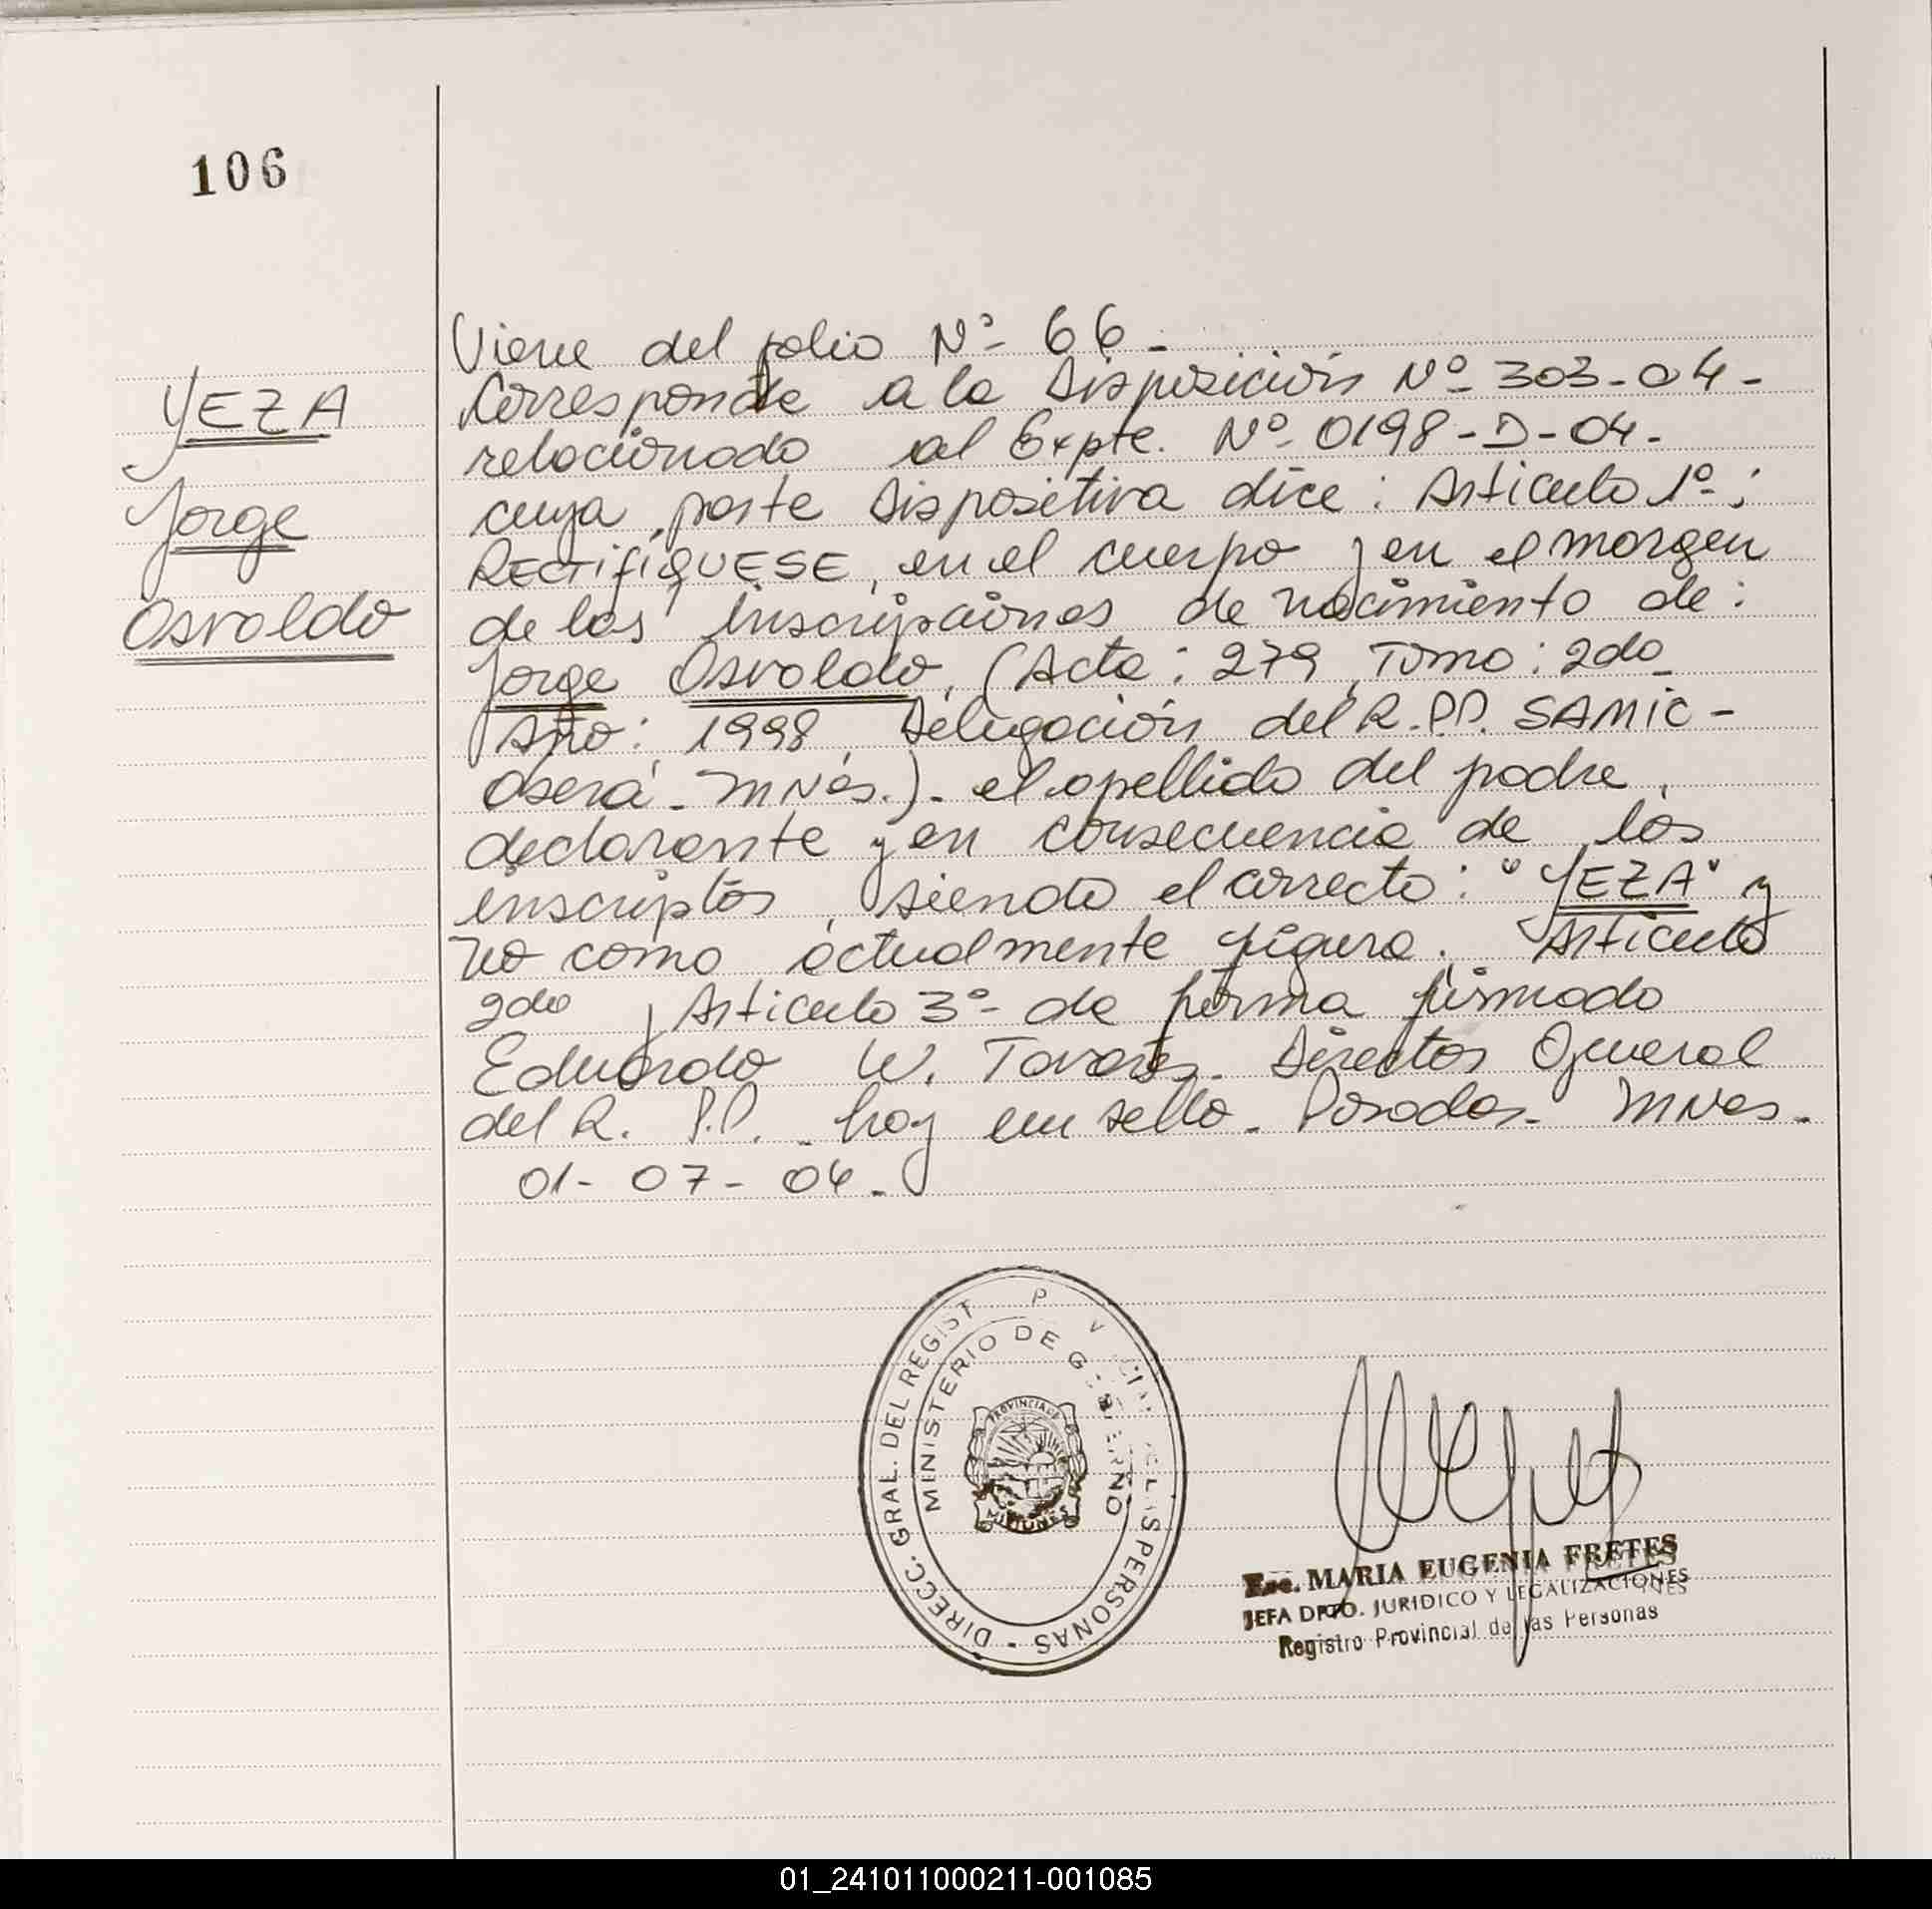 106
YEZA
Jorge
Osvaldo
Viene del folio Nº 66-
Corresponde a la Disposición Nº 303-04-
relacionado al Expte. Nº 0198-D-04-
cuya parte Dispositiva dice: Articulo 1º:
RECTIFÍQUESE, en el cuerpo y en el margen
de las inscripciones de nacimiento de:
Jorge Osvaldo, (Acta: 279, Tomo: 2do
Año: 1998, Delegación del R.P.P. SAMIC-
Oberá- Mnes.)- el apellido del padre,
declarante y en consecuencia de los
inscriptos, siendo el correcto: "YEZA" y
no como actualmente figura. Articulo
2do y Articulo 3º- de forma firmado
Eduardo W. Tavares. Director General
del R. P.P. - hoy un sello- Posadas- Mnes-
01-07-04-
DIRECC. GRAL. DEL REGIST P V PERSONAS -
MINISTERIO DE GOBIERNO
PROVINCIA DE
MISIONES
Esc. MARIA EUGENIA FRETES
JEFA DPTO. JURIDICO Y LEGALIZACIONES
Registro Provincial de las Personas
01_241011000211-001085